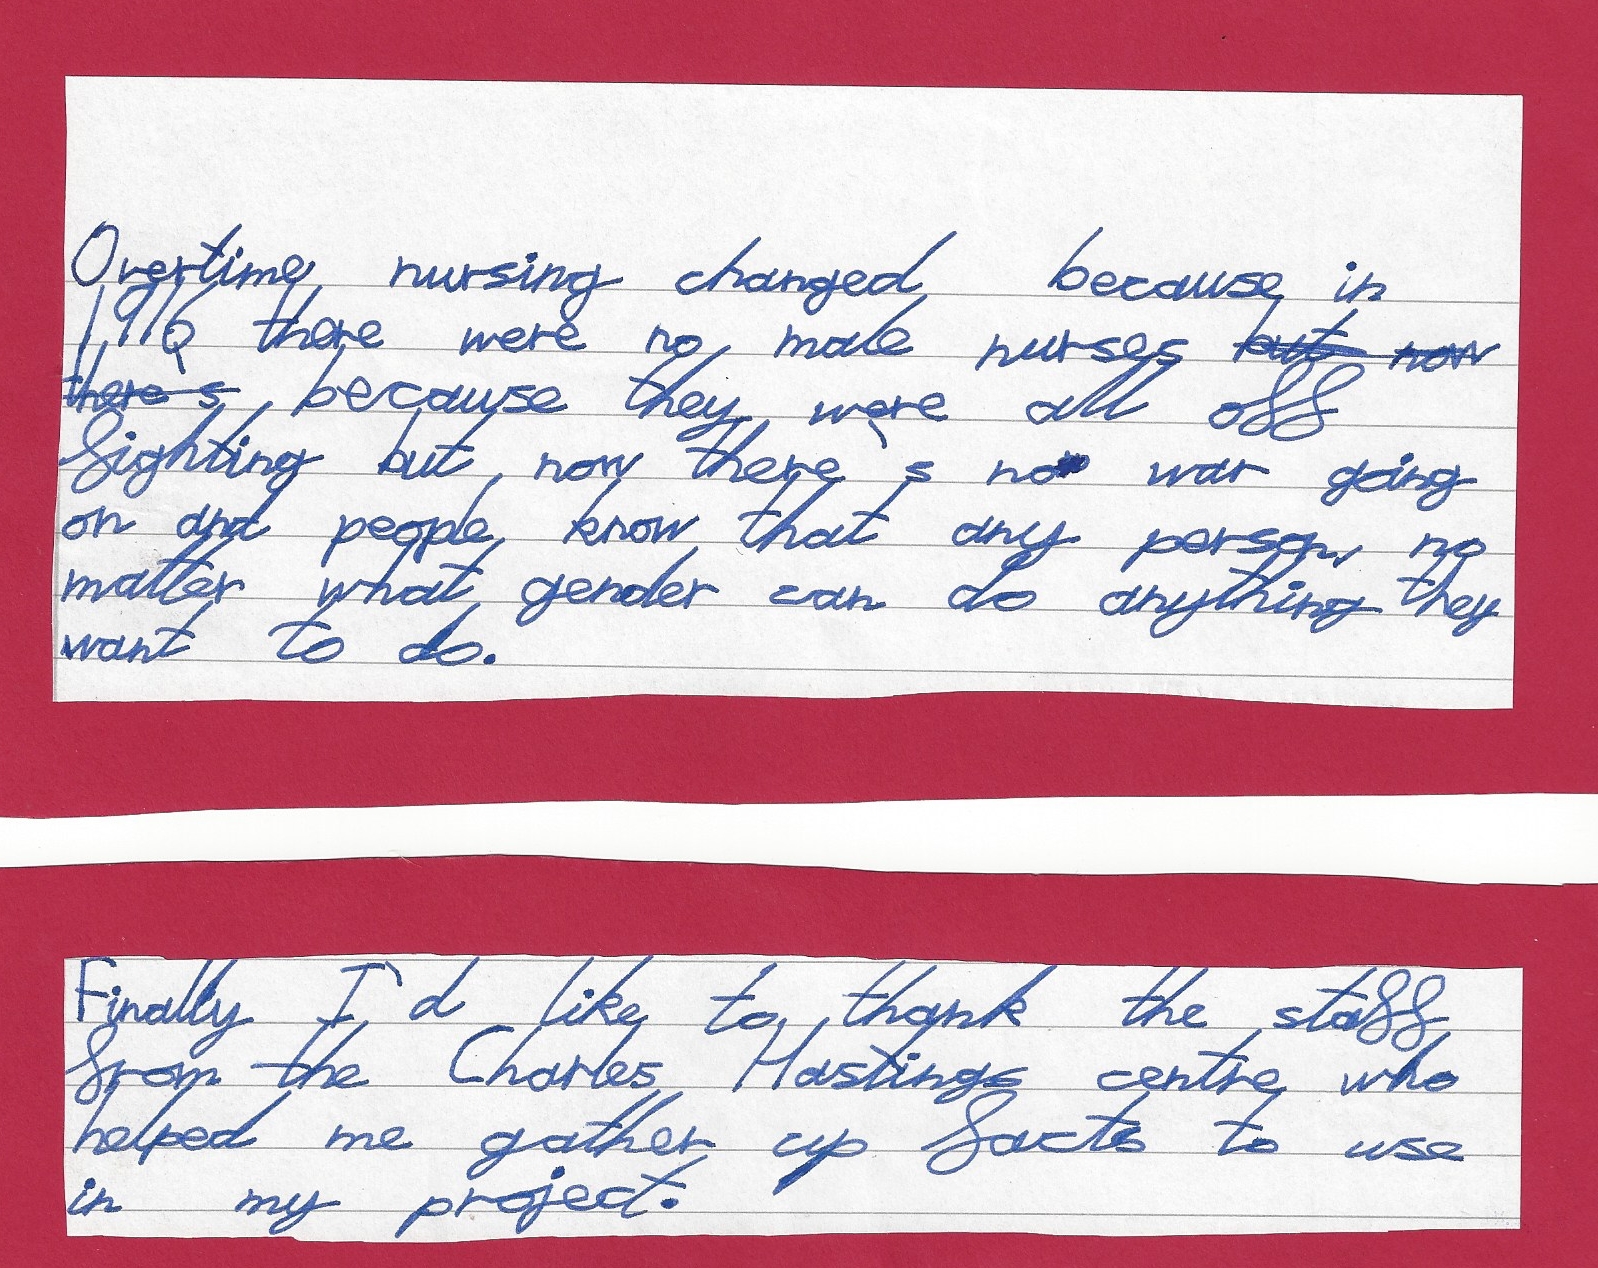 Overtime nursing changed because in
1916 there were no male nurses but now
there's because they were all off
fighting but now there's no war going
on and people know that any person, no
matter what gender can do anything they
want to do.
Finally I'd like to thank the staff
from the Charles Hastings centre who
helped me gather up facts to use
in my project.